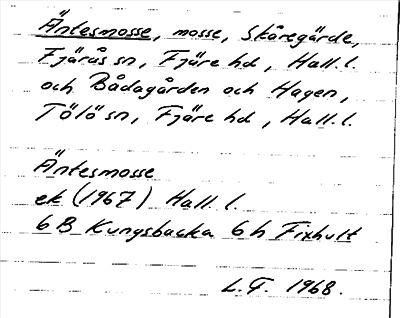 Äntesmosse, mosse, Skåregärde,
Fjärås sn, Fjäre hd, Hall. l.
och Bådagården och Hagen,
Tölö sn, Fjäre hd, Hall. l.
Äntesmosse
ek (1967) Hall. l.
6 B Kungsbacka 6 h Fixhult
L.F. 1968.